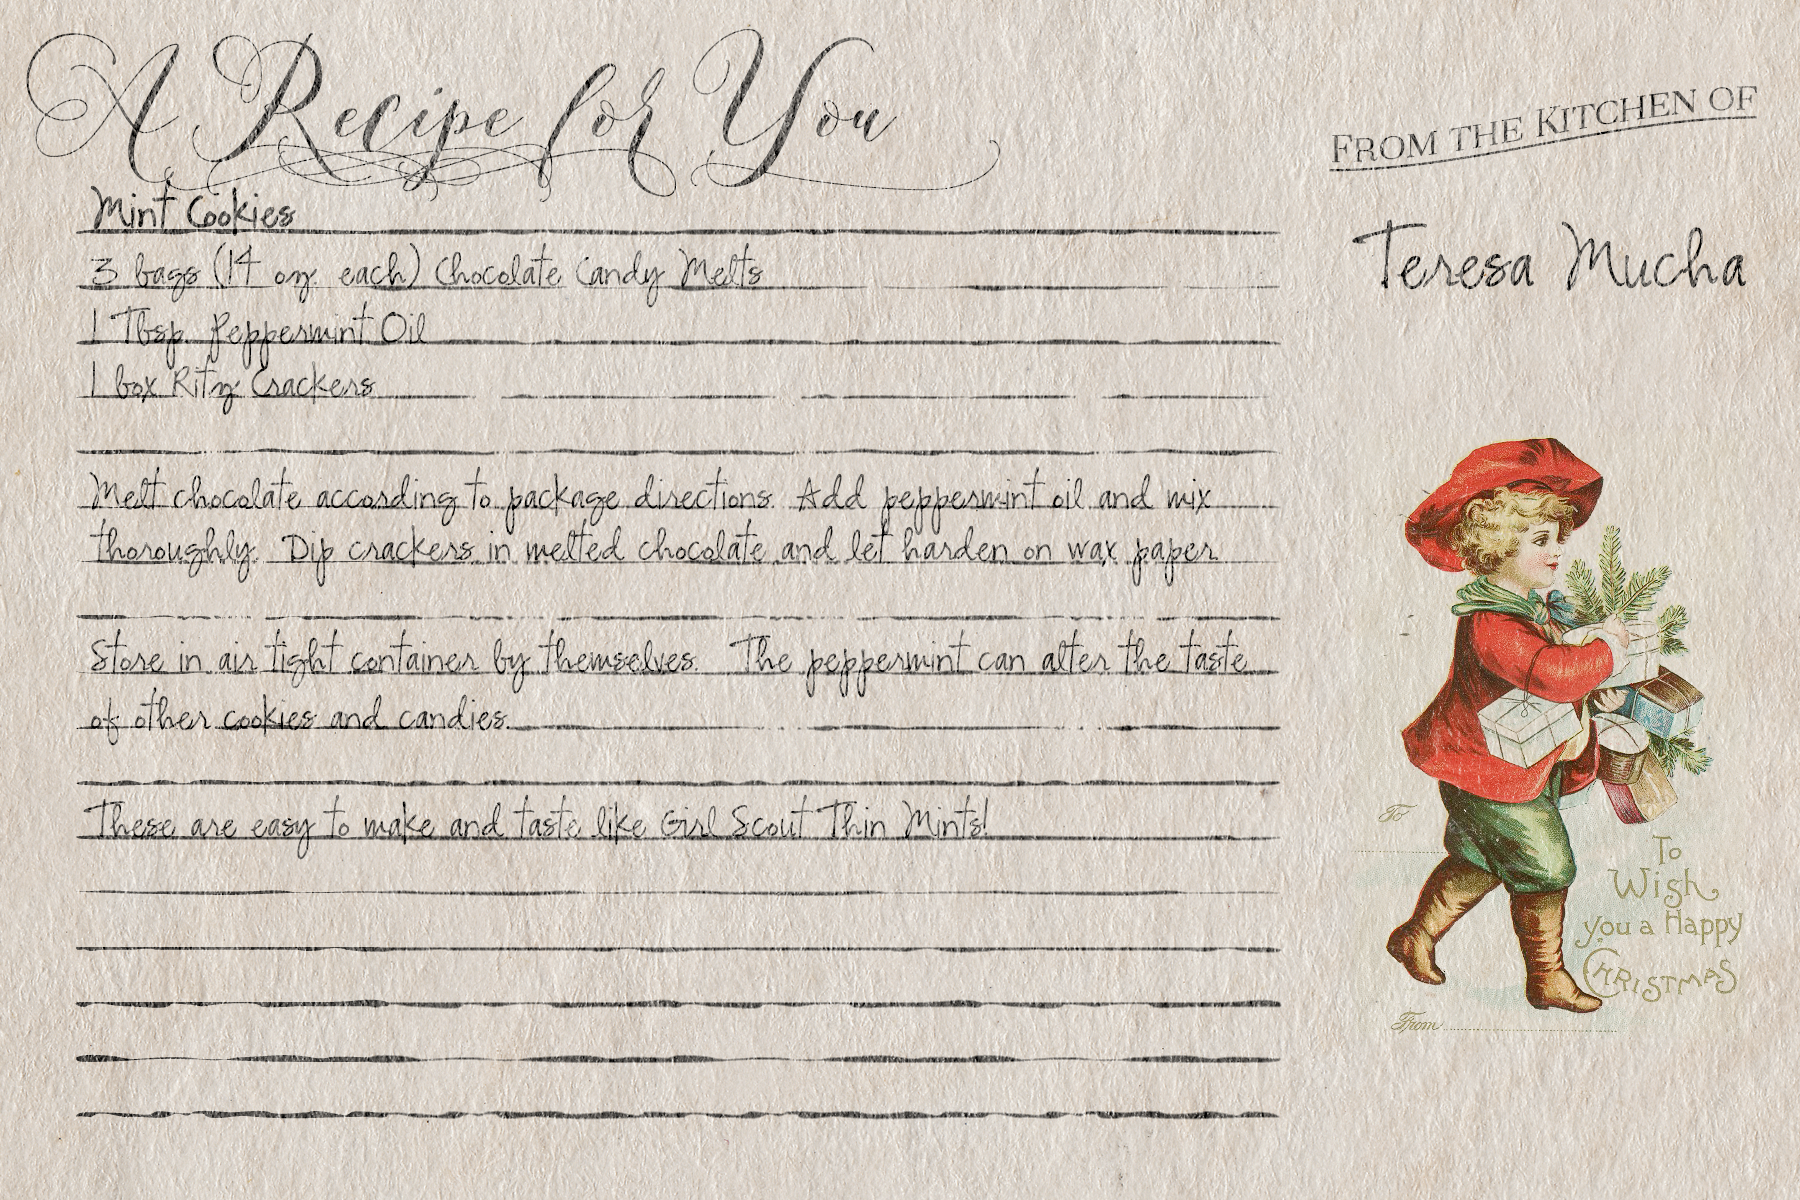 A Recipe for You
FROM THE KITCHEN OF
Teresa Mucha
Mint Cookies
3 bags (14 oz. each) Chocolate Candy Melts
1 Tbsp. Peppermint Oil
1 box Ritz Crackers
Melt chocolate according to package directions. Add peppermint oil and mix
thoroughly. Dip crackers in melted chocolate and let harden on wax paper
Store in air tight container by themselves. The peppermint can alter the taste
of other cookies and candies.
These are easy to make and taste like Girl Scout Thin Mints!
To
To
Wish
you a Happy
CHRISTMAS
From